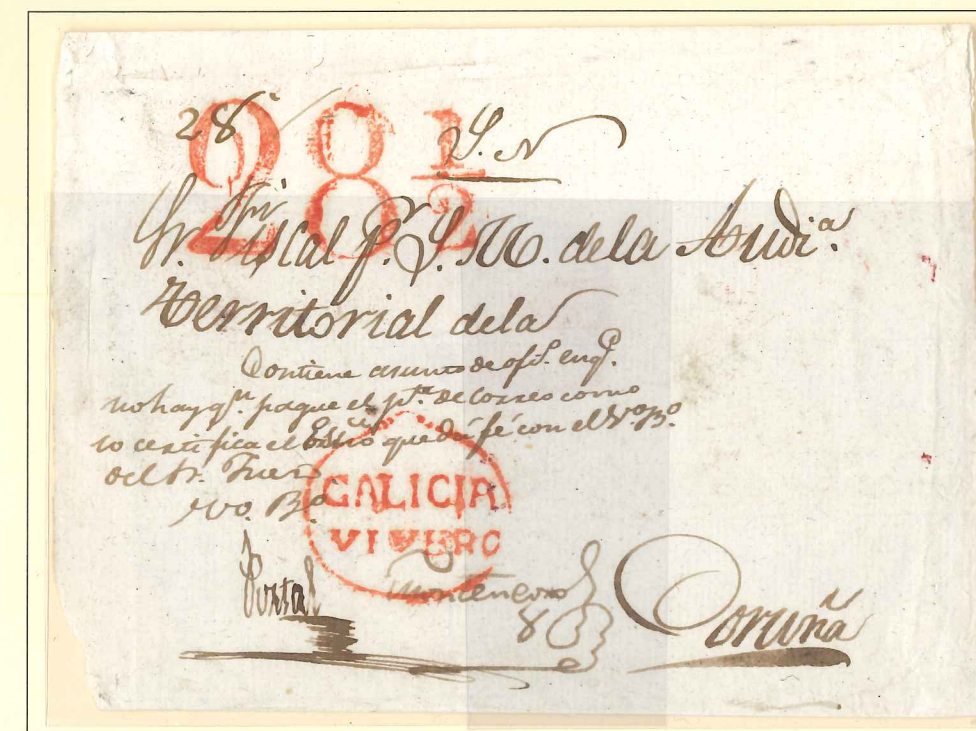 28
28 1/2
S. N
Sr. Fiscal pr. S. M. dela Audi.a
Territorial dela
Contiene asunto de ofi.o en q.e
no hay q.n pague el p.te de Correo como
lo certifica el Essno que dá fé con el V.o B.o
del Sr. Juez
Vo. Bo.
GALICIA
VIVERO
Montenegro
Coruña